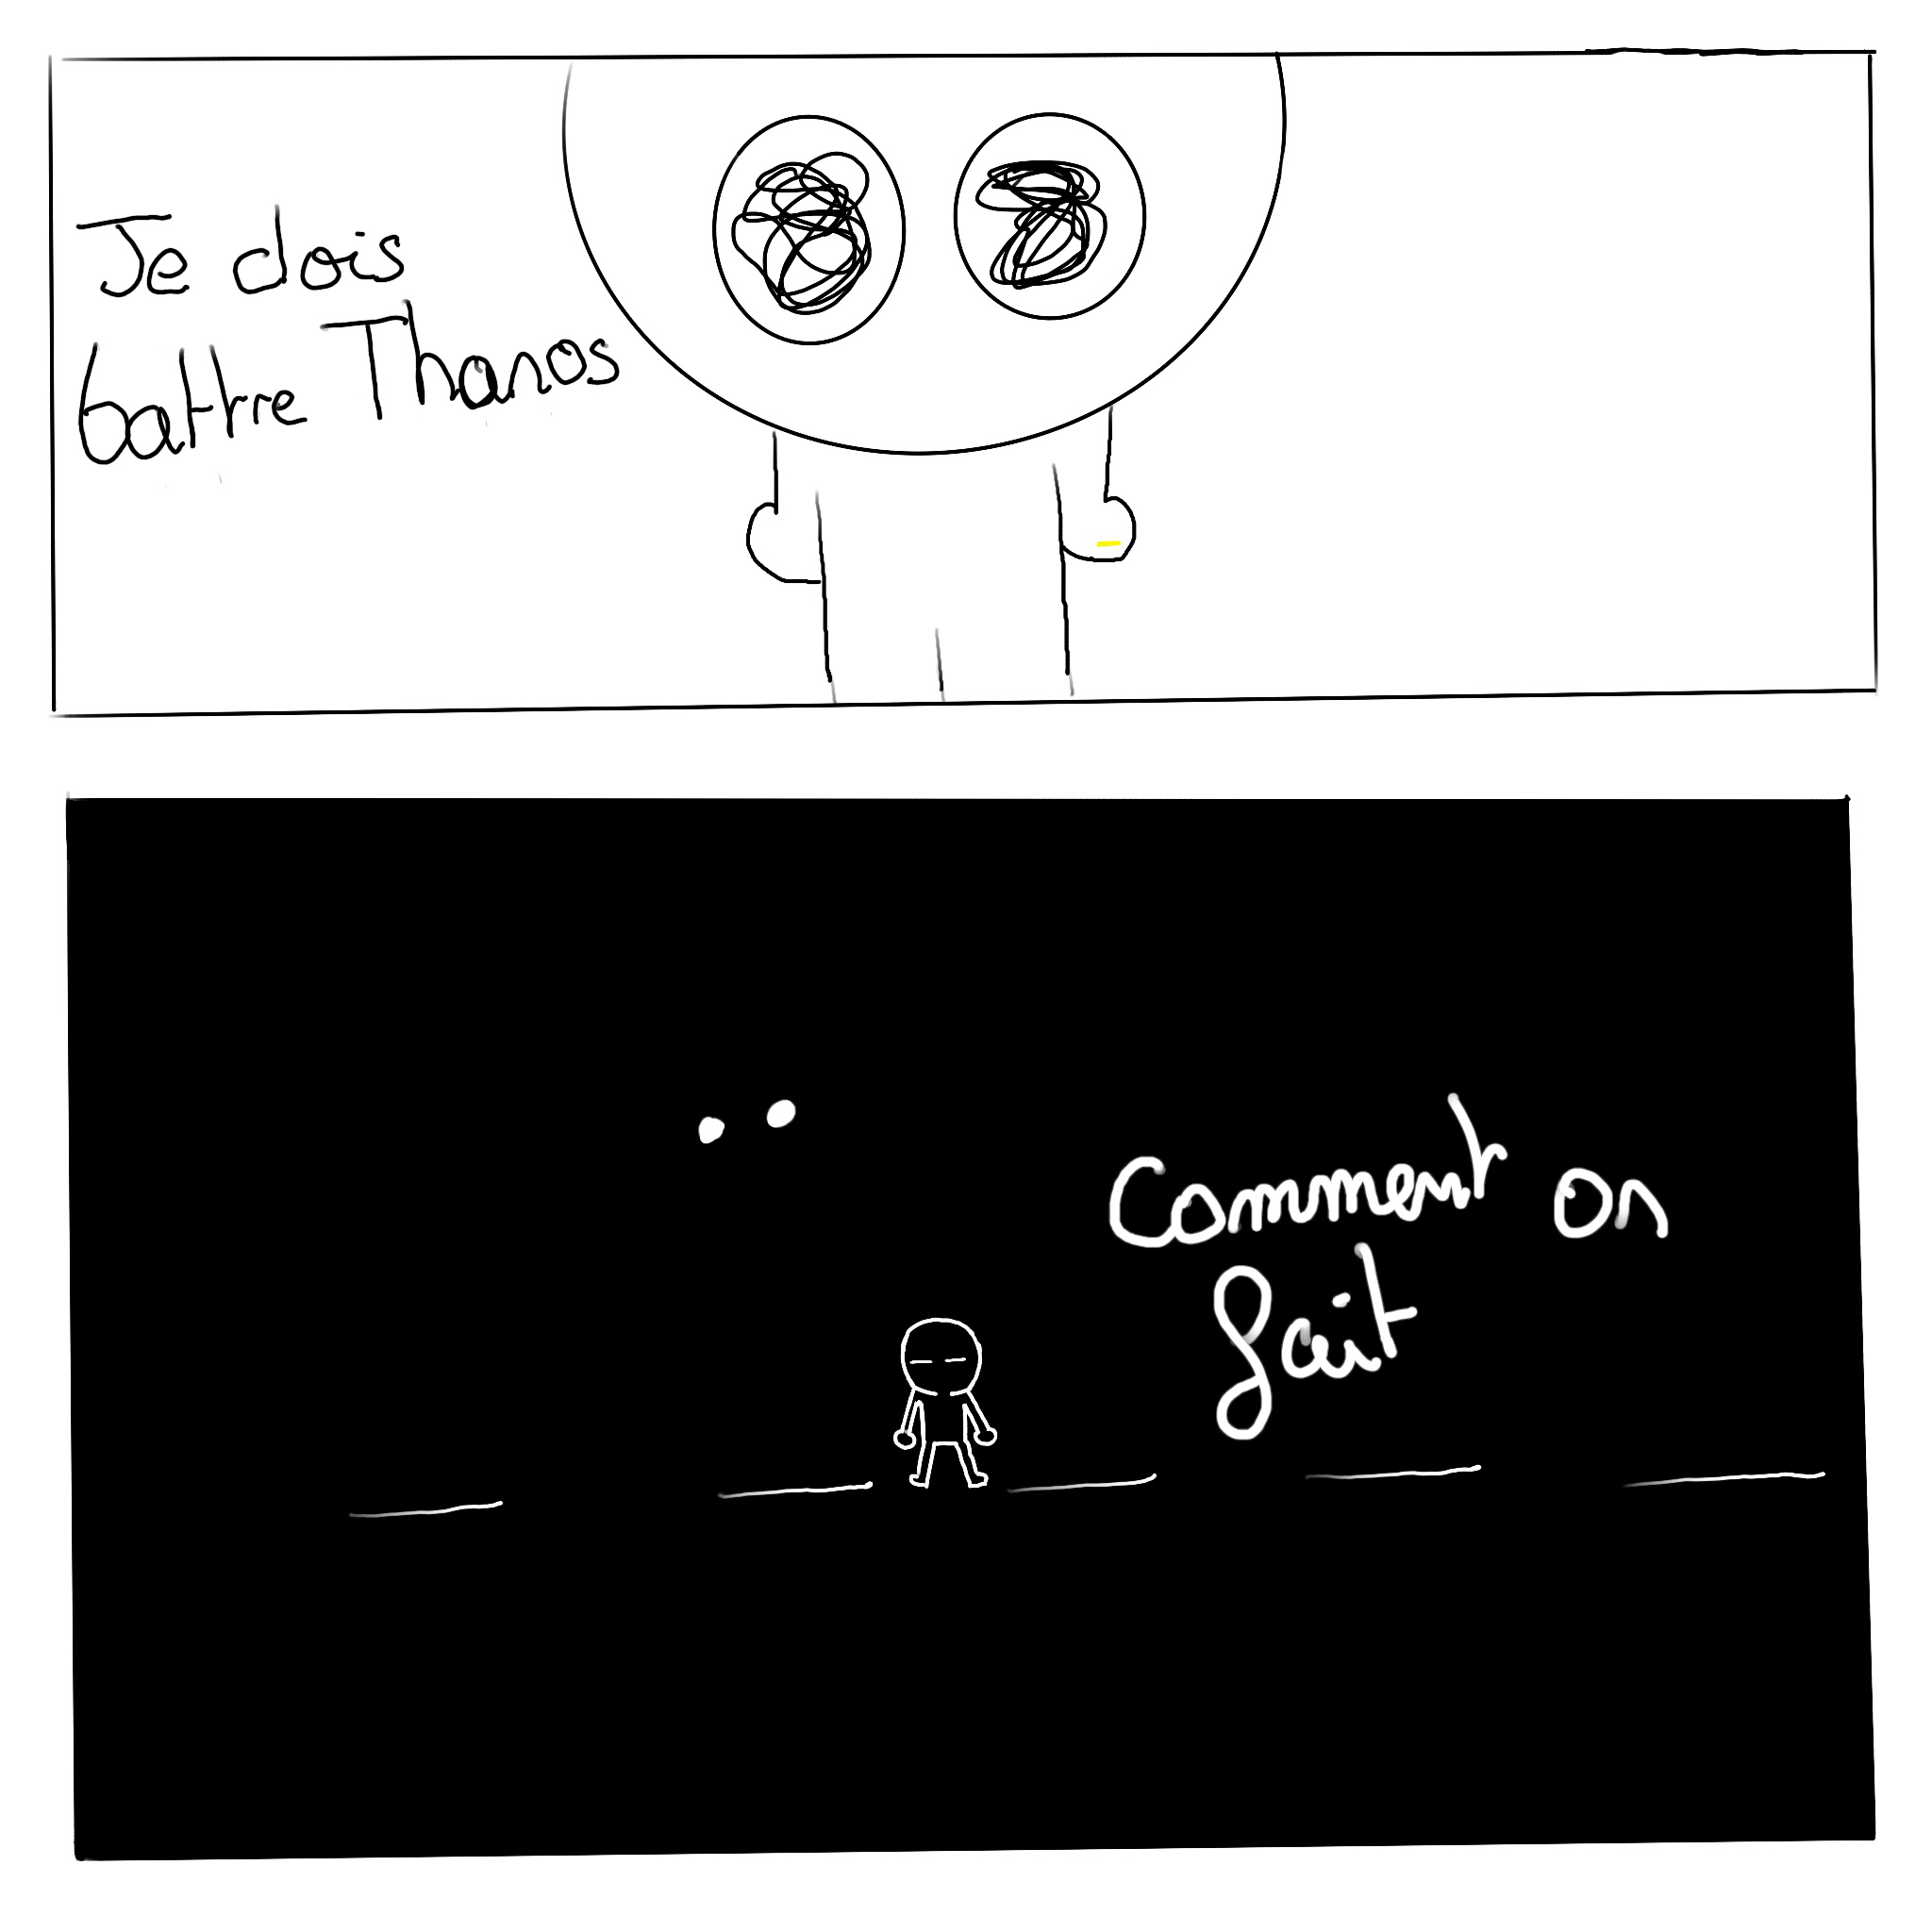 Je dois
battre Thanos
Comment on
fait